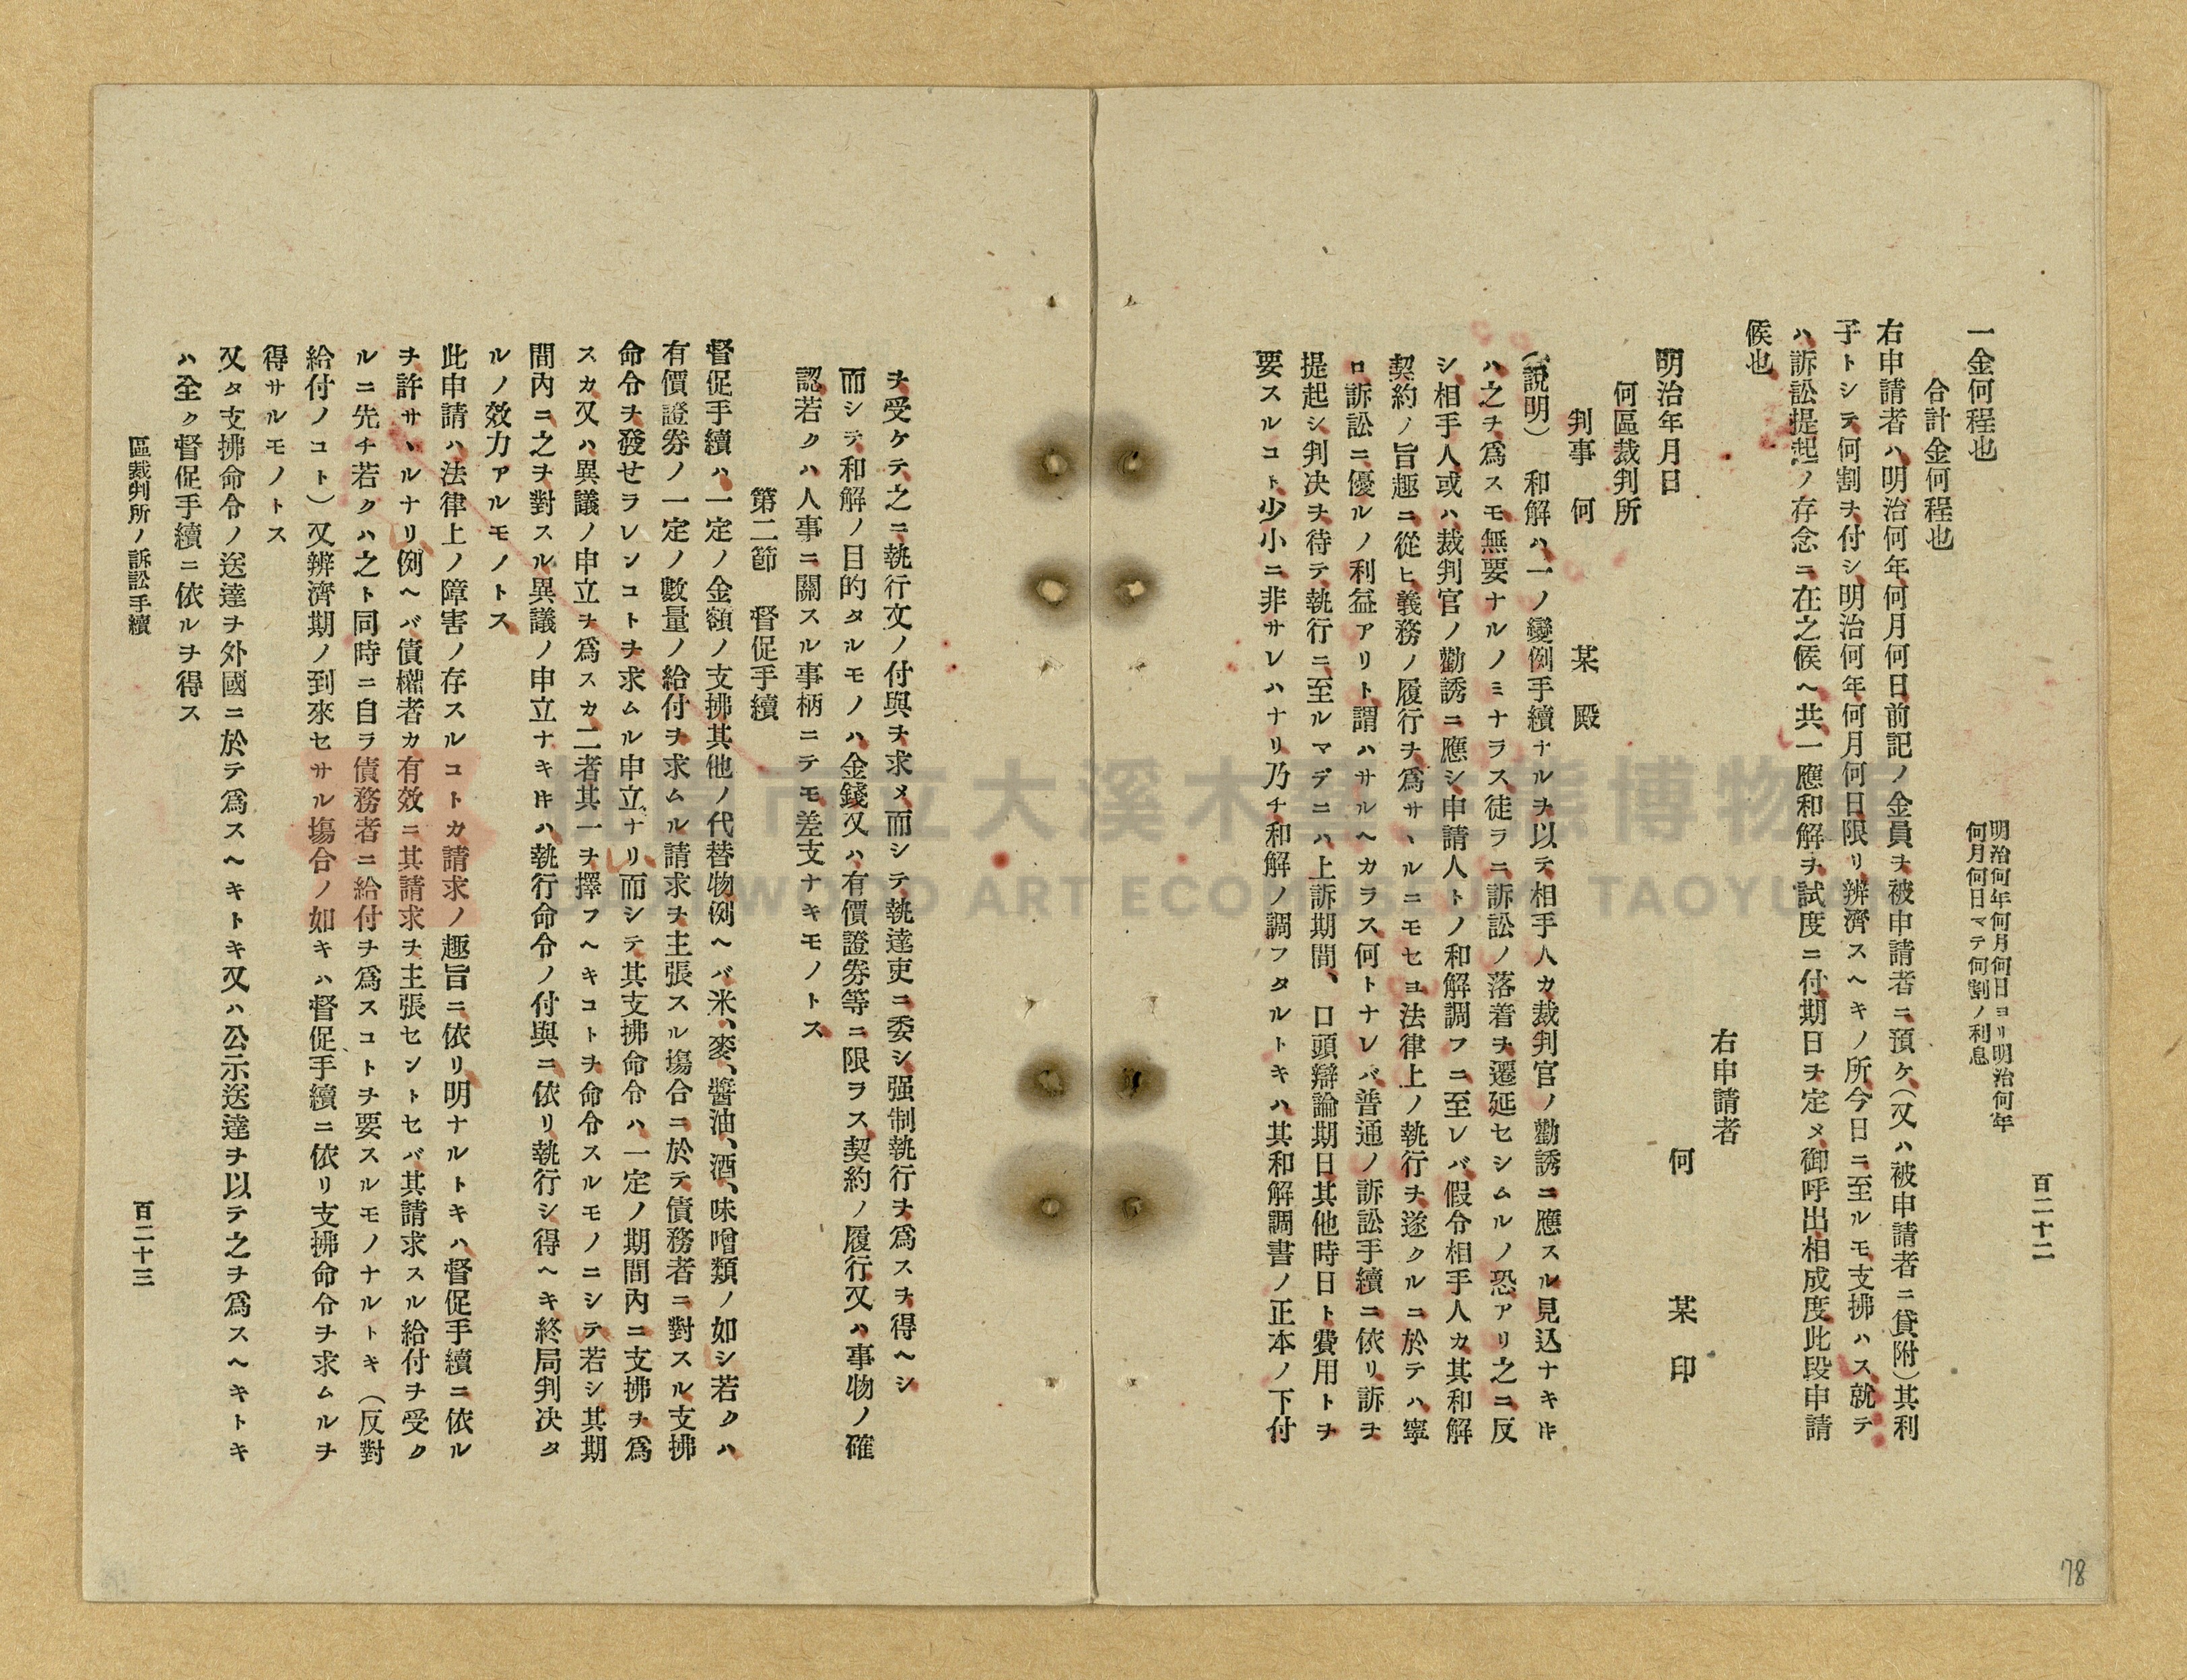 百二十二
一金何程也
明治何年何月何日ヨリ明治何年
何月何日マテ何割ノ利息
合計金何程也
右申請者ハ明治何年何月何日前記ノ金員ヲ被申請者ニ預ケ(又ハ被申請者ニ貸附)其利
子トシテ何割ヲ付シ明治何年何月何日限リ辨濟スヘキノ所今日ニ至ルモ支拂ハス就テ
ハ訴訟提起ノ存念ニ在之候ヘ共一應和解ヲ試度ニ付期日ヲ定メ御呼出相成度此段申請
候也
右申請者
何 某 印
明治年月日
何區裁判所
判事 何 某 殿
(說明) 和解ハ一ノ變例手續ナルヲ以テ相手人カ裁判官ノ勸誘ニ應スル見込ナキ𪜈
ハ之ヲ爲スモ無要ナルノミナラス徒ラニ訴訟ノ落着ヲ遷延セシムルノ恐アリ之ニ反
シ相手人或ハ裁判官ノ勸誘ニ應シ申請人トノ和解調フニ至レバ假令相手人カ其和解
契約ノ旨趣ニ從ヒ義務ノ履行ヲ爲サヽルニモセヨ法律上ノ執行ヲ遂クルニ於テハ寧
ロ訴訟ニ優ルノ利益アリト謂ハサルヘカラス何トナレバ普通ノ訴訟手續ニ依リ訴ヲ
提起シ判决ヲ待テ執行ニ至ルマデニハ上訴期間、口頭辯論期日其他時日ト費用トヲ
要スルコト少小ニ非サレハナリ乃チ和解ノ調フタルトキハ其和解調書ノ正本ノ下付
ヲ受ケテ之ニ執行文ノ付與ヲ求メ而シテ執達吏ニ委シ强制執行ヲ爲スヲ得ヘシ
而シテ和解ノ目的タルモノハ金錢又ハ有價證券等ニ限ラス契約ノ履行又ハ事物ノ確
認若クハ人事ニ關スル事柄ニテモ差支ナキモノトス
第二節 督促手續
督促手續ハ一定ノ金額ノ支拂其他ノ代替物例ヘバ米、麥、醬油、酒、味噌類ノ如シ若クハ
有價證券ノ一定ノ數量ノ給付ヲ求ムル請求ヲ主張スル塲合ニ於テ債務者ニ對スル支拂
命令ヲ發セラレンコトヲ求ムル申立ナリ而シテ其支拂命令ハ一定ノ期間內ニ支拂ヲ爲
スカ又ハ異議ノ申立ヲ爲スカ二者其一ヲ擇フヘキコトヲ命令スルモノニシテ若シ其期
間內ニ之ヲ對スル異議ノ申立ナキ𪜈ハ執行命令ノ付與ニ依リ執行シ得ヘキ終局判决タ
ルノ效力アルモノトス
此申請ハ法律上ノ障害ノ存スルコトカ請求ノ趣旨ニ依リ明ナルトキハ督促手續ニ依ル
ヲ許サヽルナリ例ヘバ債權者カ有效ニ其請求ヲ主張セントセバ其請求スル給付ヲ受ク
ルニ先チ若クハ之ト同時ニ自ラ債務者ニ給付ヲ爲スコトヲ要スルモノナルトキ(反對
給付ノコト)又辨濟期ノ到來セサル塲合ノ如キハ督促手續ニ依リ支拂命令ヲ求ムルヲ
得サルモノトス
又タ支拂命令ノ送達ヲ外國ニ於テ爲スヘキトキ又ハ公示送達ヲ以テ之ヲ爲スヘキトキ
ハ全ク督促手續ニ依ルヲ得ス
區裁判所ノ訴訟手續
百二十三
78
桃園市立大溪木藝生態博物館
DAXI WOOD ART ECOMUSEUM, TAOYUAN